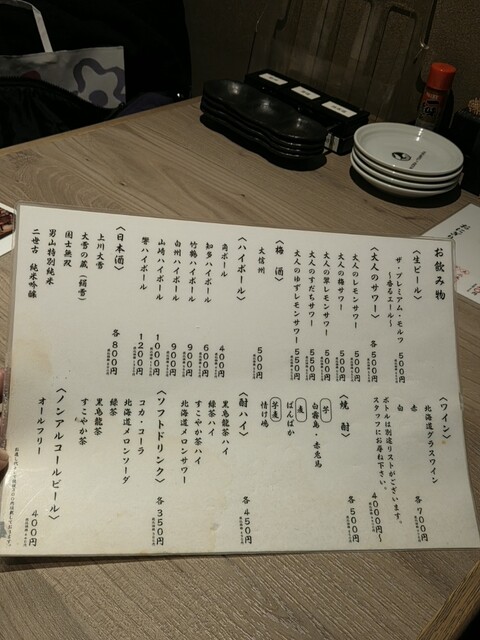 お飲み物
〈生ビール〉
ザ・プレミアム・モルツ 500円
〜香るエール〜
〈大人のサワー〉 各500円
大人のレモンサワー
大人の梅サワー 500円
大人の翠レモンサワー 500円
大人のすだちサワー 500円
大人のゆずレモンサワー 550円
〈梅酒〉
大信州 500円
〈ハイボール〉
角ボール 400円
知多ハイボール 600円
竹鶴ハイボール 900円
白州ハイボール 900円
山崎ハイボール 1000円
響ハイボール 1200円
〈日本酒〉 各800円
上川大雪
大雪の蔵(絹雪)
国士無双
男山特別純米
二世古 純米吟醸
〈ワイン〉
北海道グラスワイン 各700円
赤
白
ボトルは別途リストがございます。 4000円〜
スタッフにお尋ね下さい。
〈焼酎〉 各500円
芋
白霧島・赤兎馬
麦
ぱんぱか
芋麦
情け嶋
〈酎ハイ〉 各450円
黒烏龍茶ハイ
緑茶ハイ
すこやか茶ハイ
北海道メロンサワー
〈ソフトドリンク〉 各350円
コカ・コーラ
北海道メロンソーダ
緑茶
黒烏龍茶
すこやか茶
〈ノンアルコールビール〉
オールフリー 400円